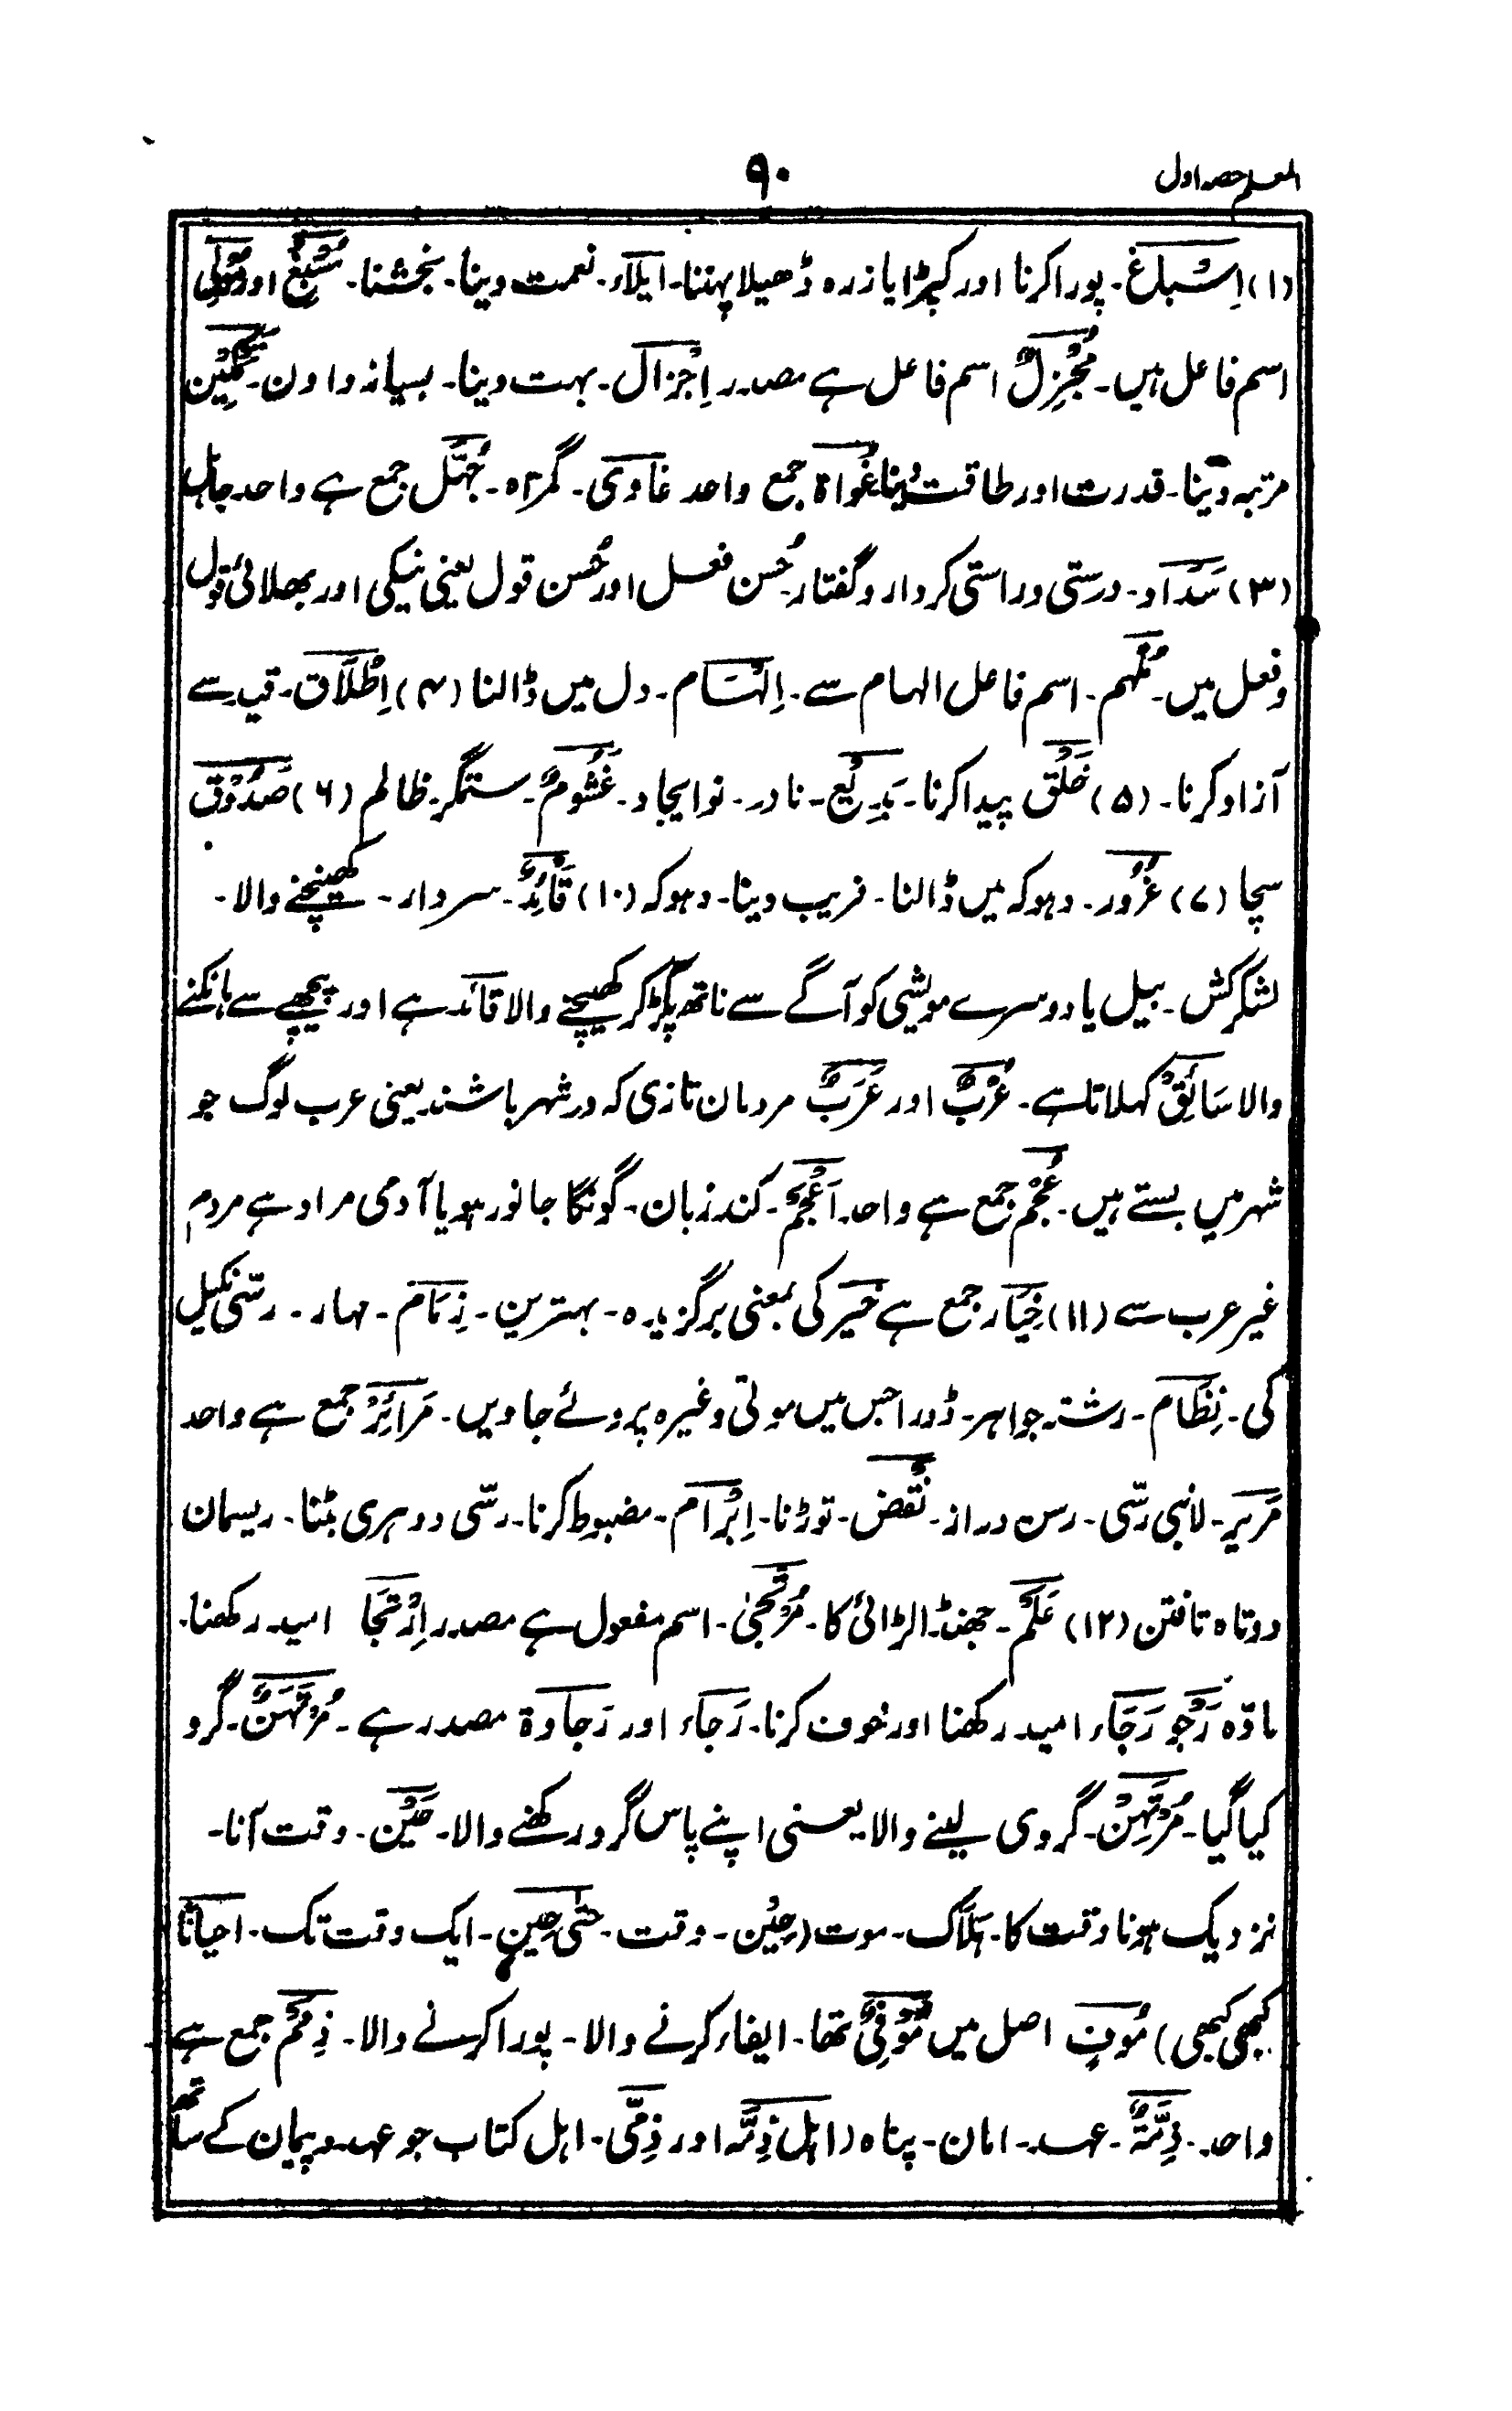 المعلم حصہ اول
۹۰
(۱) اِسْبَاغ۔ پورا کرنا اور کپڑا یا زرہ ڈھیلا پہننا۔ ایلآء۔ نعمت دینا۔ بخشنا۔ مُسْبِغٌ اور مُوْلِی
اسم فاعل ہیں۔ مُجْزِلٌ اسم فاعل ہے مصدر اِجْزَال۔ بہت دینا۔ بسیانہ دادن۔ تَمْکِیْن
مرتبہ دینا۔ قدرت اور طاقت دینا غُوَاۃ جمع واحد غاوی۔ گمراہ۔ جُہَّل جمع ہے واحد جاہل
(۳) سَدَاد۔ درستی و راستی کردار و گفتار۔ حُسن فعل اور حُسن قول یعنی نیکی اور بھلائی قول
وفعل میں۔ مُلْہِم۔ اسم فاعل الہام سے۔ اِلْہَام۔ دل میں ڈالنا (۴) اِطْلَاق۔ قید سے
آزاد کرنا۔ (۵) خَلْق پیدا کرنا۔ بَدِیْع۔ نادر۔ نوایجاد۔ غَشُوْمٌ۔ ستمگر۔ ظالم (۶) صَدُوْق
سچا (۷) غُرُور۔ دہوکہ میں ڈالنا۔ فریب دینا۔ دہوکہ (۱۰) قَائِدٌ۔ سردار۔ کھینچنے والا۔
لشکرکش۔ بیل یا دوسرے مویشی کو آگے سے ناتھ پکڑ کر کھینچنے والا قائد ہے اور پیچھے سے ہانکنے
والا سَائِقٌ کہلاتا ہے۔ عُرْبٌ اور عَرَبٌ مردمان تازی کہ در شہر باشند یعنی عرب لوگ جو
شہر میں بستے ہیں۔ عُجْم جمع ہے واحد۔ اَعْجَمُ۔ کند زبان۔ گونگا جانور ہو یا آدمی مراد ہے مردم
غیر عرب سے (۱۱) خِیَار جمع ہے خَیر کی بمعنی برگزیدہ۔ بہترین۔ زِمَام۔ مہار۔ رسّی نکیل
کی۔ نِظَام۔ رشتہ جواہر۔ ڈورا جس میں موتی وغیرہ پروئے جاویں۔ مَرَائِرُ جمع ہے واحد
مَرِیر۔ لانبی رسّی۔ رسن دراز۔ نَقْض۔ توڑنا۔ اِبْرَام۔ مضبوط کرنا۔ رسّی دوہری بٹنا۔ ریسمان
دوتاہ تافتن (۱۲) عَلَم۔ جھنڈا لڑائی کا۔ مُرْتَجیٰ۔ اسم مفعول ہے مصدر اِرْتِجَا امید رکھنا۔
مادّہ رَجْو رَجَاء امید رکھنا اور خوف کرنا۔ رَجَاء اور رَجاوۃ مصدر ہے۔ مُرْتَہَنٌ۔ گرو
کیا گیا۔ مُرْتَہِنٌ۔ گروی لینے والا یعنی اپنے پاس گرو رکھنے والا۔ حَیْن۔ وقت آنا۔
نزدیک ہونا وقت کا۔ ہلَاک۔ موت (حِیْن۔ وقت۔ حتّٰی حِیْنٍ۔ ایک وقت تک۔ احیاناً
کبھی کبھی) مُوفٍ اصل میں مُوْفِیٌ تھا۔ ایفاء کرنے والا۔ پورا کرنے والا۔ ذِمَمٌ جمع ہے
واحد۔ ذِمَّۃٌ۔ عہد۔ امان۔ پناہ (اہل ذِمَّہ اور ذِمّی۔ اہل کتاب جو عہد و پیمان کے ساتھ